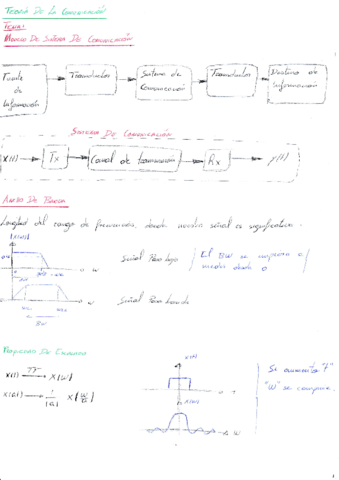 TEORÍA DE LA COMUNICACIÓN
TEMA 1
MODELO DE SISTEMA DE COMUNICACIÓN
Fuente de Información
Transductor
Sistema de Comunicación
Transductor
Destino de Información
SISTEMA DE COMUNICACIÓN
X(t)
Tx
Canal de transmisión
Rx
y(t)
ANCHO DE BANDA
Longitud del rango de frecuencias, donde nuestra señal es significativa.
|X(w)|
w
Señal Paso bajo
El BW se empieza a medir desde 0
w
BW
Señal Paso banda
PROPIEDAD DE
x(t) X(w)
x(at) 1/|a| X(w/a)
x(t)
t
X(w)
w
Si aumenta "t"
"w" se comprime.